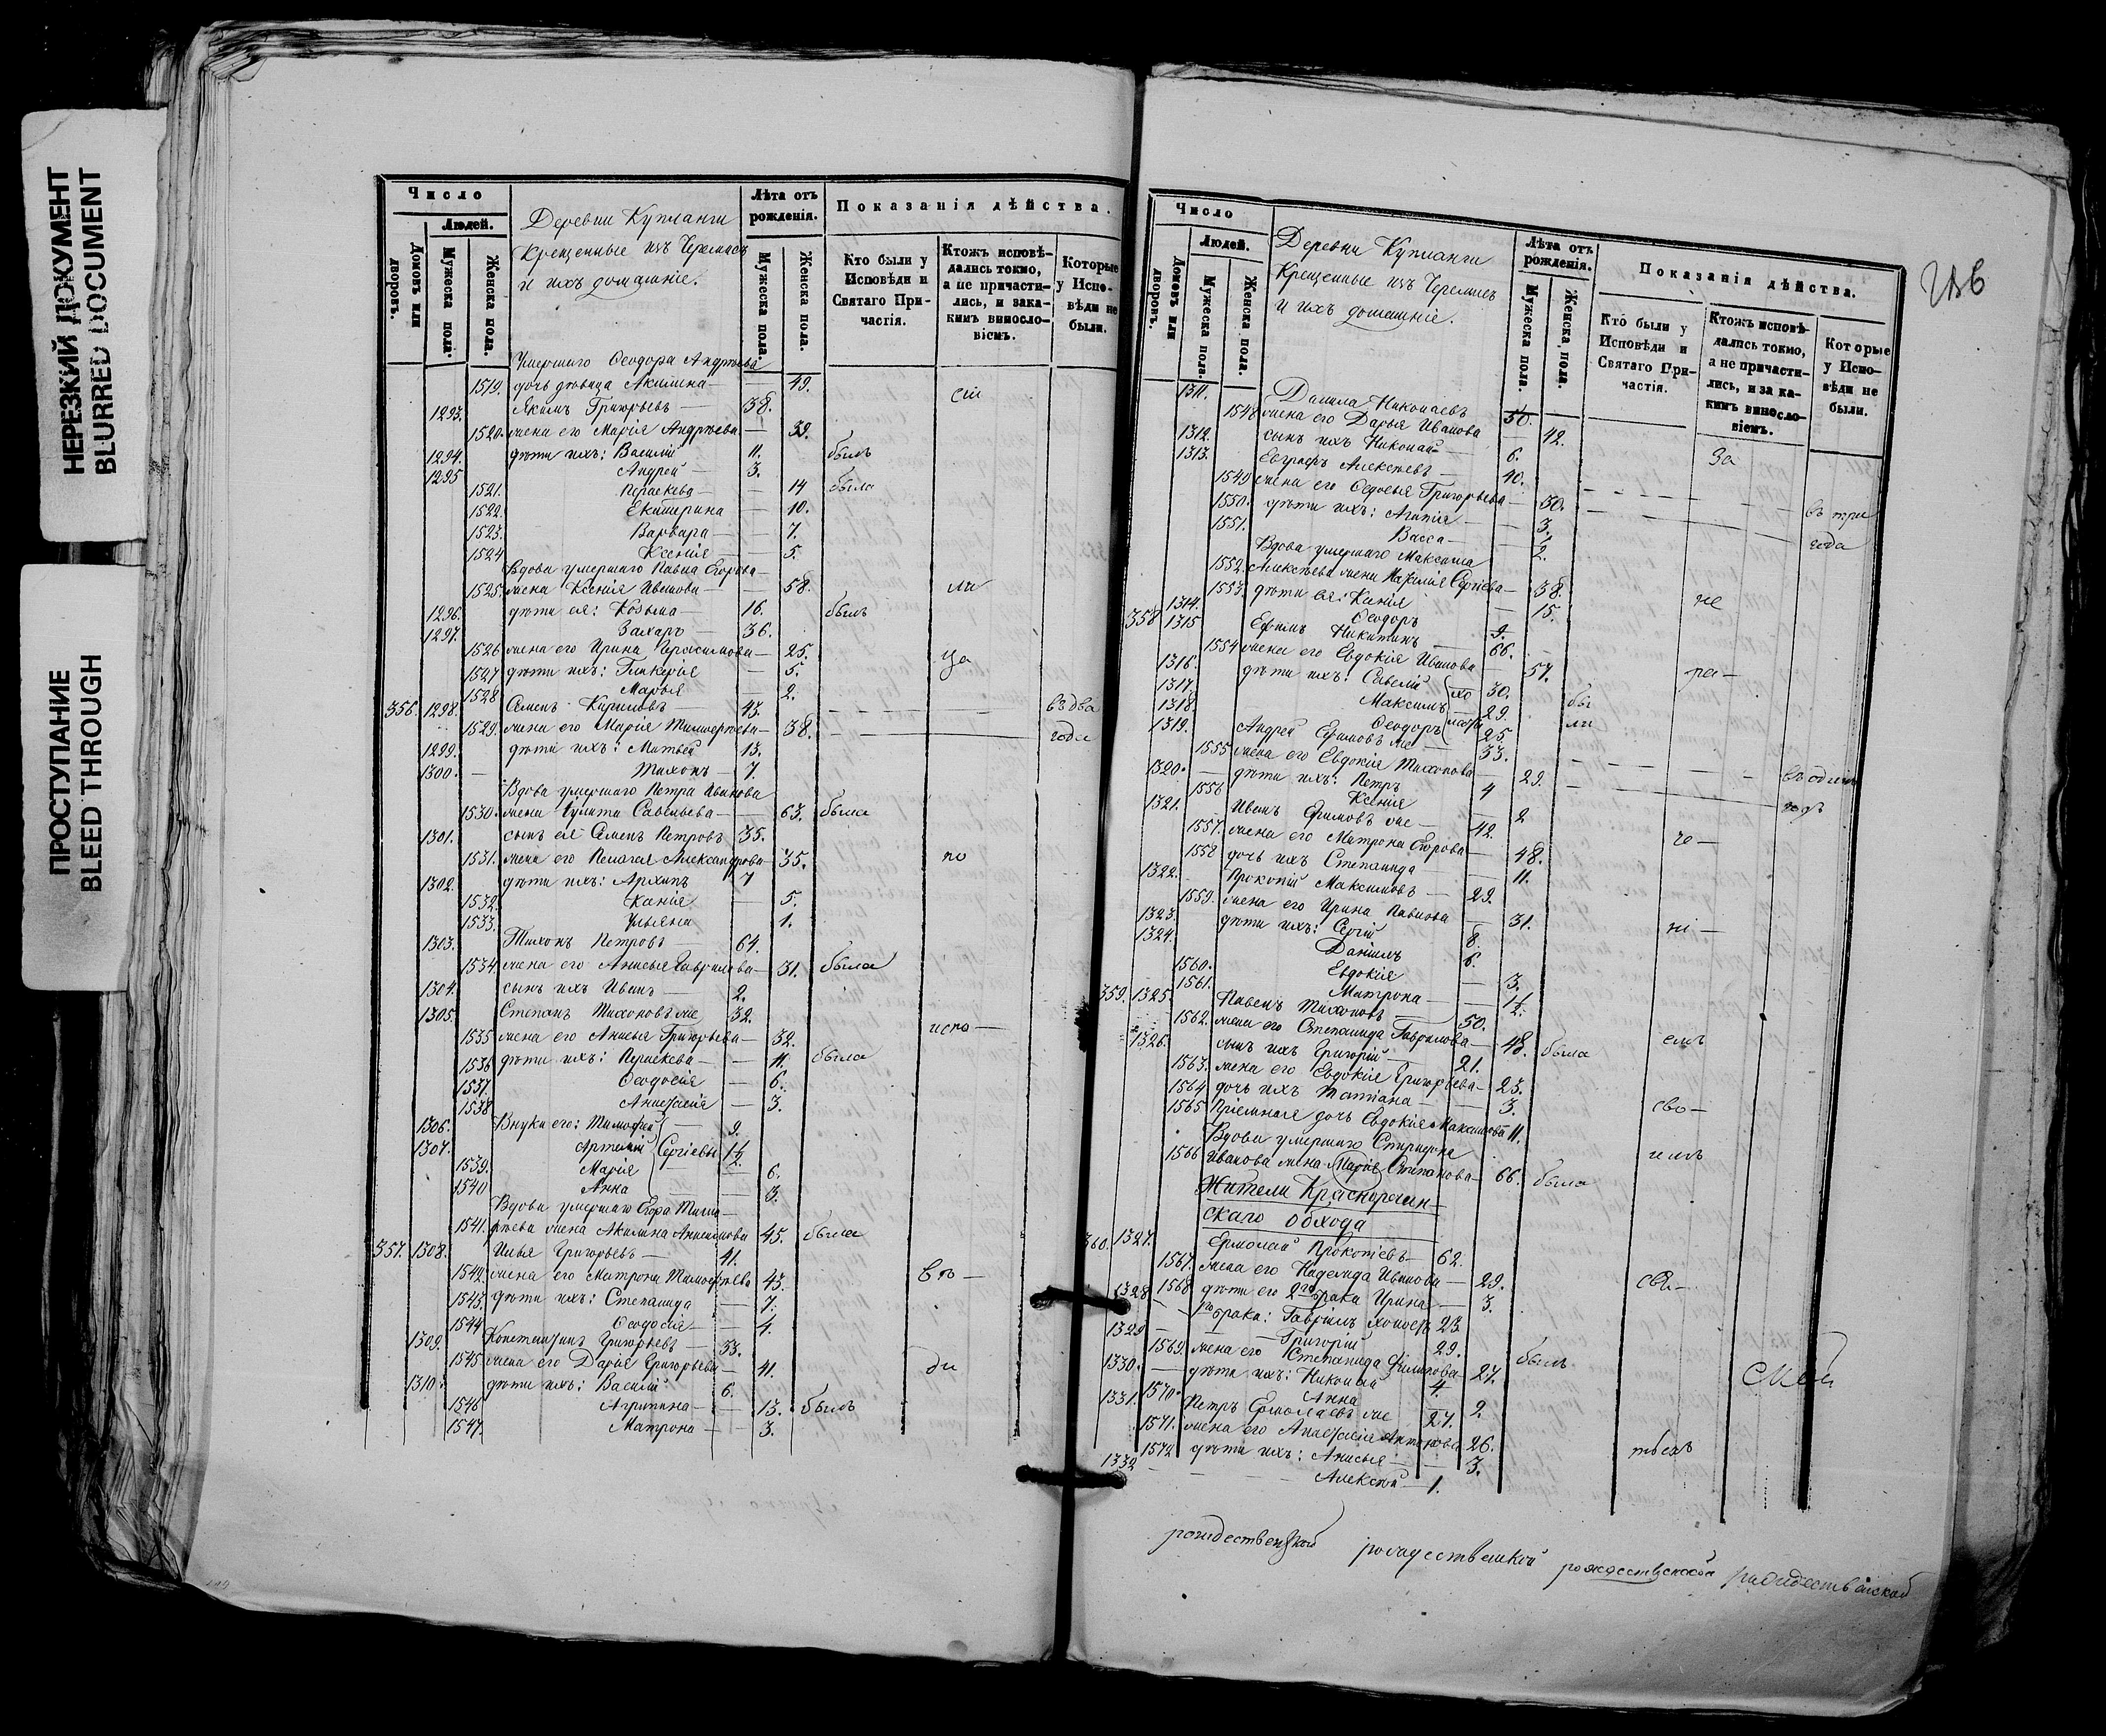 НЕРЕЗКИЙ ДОКУМЕНТ
BLURRED DOCUMENT
ПРОСТУПАНИЕ
BLEED THROUGH
Число
Людей.
Домовъ или дворовъ.
Мужеска пола.
Женска пола.
Деревни Купланги
Крещенные изъ Черемисъ
и ихъ домашніе.
Лѣта отъ рожденія.
Мужеска пола.
Женска пола.
Показанія дѣйства.
Кто были у Исповѣди и Святаго Причастія.
Ктожъ исповѣдались токмо, а не причастились, и за какимъ винословіемъ.
Которые у Исповѣди не были.
Умершаго Ѳеодора Андреева
1519. дочь дѣвица Акилина — 49. сіи
1293. Якимъ Григорьевъ — 38.
1520. жена его Марія Андреева — 39.
1294. дѣти ихъ: Василій 11. былъ
1295 Андрей — 3.
1521. Параскева — 14 была
1522. Екатерина — 10.
1523. Варвара — 7.
1524 Ксенія — 5.
Вдова умершаго Павла Егорова
1525. жена Ксенія Иванова — 58. ли
1296. дѣти ея: Козьма — 16. былъ
1297. Захаръ — 36.
1526 жена его Ирина Герасимова — 25. ца
1527 дѣти ихъ: Гликерія — 5.
1528 Марья — 2.
356. 1298. Семенъ Кириловъ — 43. въ два
1529. жена его Марія Тимофеева — 38. года
1299. дѣти ихъ: Матвей 13.
1300. Тихонъ — 7.
Вдова умершаго Петра Иванова
1530. жена Улита Савельева — 63. была
1301. сынъ ея Семенъ Петровъ 35.
1531. жена его Пелагея Александрова — 35. по
1302. дѣти ихъ: Архипъ 7
1532. Ксенія — 5.
1533. Ульяна 1.
1303. Тихонъ Петровъ — 64.
1534 жена его Анисья Гаврилова — 31. была
1304. сынъ ихъ Иванъ — 2.
1305. Степанъ Тихоновъ же 32.
1535 жена его Анисья Григорьева — 32. испо —
1536 дѣти ихъ: Параскева — 11. была
1537. Ѳеодосія — 6.
1538 Анастасія — 3.
1306. Внуки его: Тимофей — 9.
1307. Артемій Сергіевы 1½
1539. Марія — 6.
1540 Анна — 3.
Вдова умершаго Егора Тимо-
1541. феева жена Акилина Анисимова 45. была
357. 1308. Илья Григорьевъ — 41.
1542. жена его Матрона Тимофеева 43. вѣ —
1543. дѣти ихъ: Степанида — 7.
1544 Ѳеодосія — 4.
1309. Константинъ Григорьевъ — 33.
1545 жена его Дарія Григорьева — 41. ди
1310. дѣти ихъ: Василій 6.
1546 Агрипина — 13. былъ
1547. Матрона — 3.
Число
Людей.
Домовъ или дворовъ.
Мужеска пола.
Женска пола.
Деревни Купланги
Крещенные изъ Черемисъ
и ихъ домашніе.
Лѣта отъ рожденія.
Мужеска пола.
Женска пола.
Показанія дѣйства.
Кто были у Исповѣди и Святаго Причастія.
Ктожъ исповѣдались токмо, а не причастились, и за какимъ винословіемъ.
Которые у Исповѣди не были.
1311. Данила Николаевъ 50.
1548 жена его Дарья Иванова — 42.
1312. сынъ ихъ Николай — 6. За
1313. Евграфъ Алексеевъ — 40.
1549 жена его Ѳедосья Григорьева — 50. въ три
1550. дѣти ихъ: Агапія — 3. года
1551. Васса — 2.
Вдова умершаго Максима
1552. Алексеева жена Наталія Сергіева — 38.
1553. дѣти ея: Ксенія — 15. не
1314. Ѳеодоръ 9.
358 1315 Ефимъ Никитинъ — 66.
1554 жена его Евдокія Иванова — 57. ра —
1316. дѣти ихъ: Савелій 30.
1317. Максимъ 29. бы
1318 Ѳеодоръ 25 ли
1319. Андрей Ефимовъ же 33.
1555 жена его Евдокія Тихонова — 29. въ одинъ
1320. дѣти ихъ: Петръ 4 годъ
1556 Ксенія — 2
1321. Иванъ Ефимовъ же — 42.
1557. жена его Матрона Егорова — 48. че —
1558 дочь ихъ Степанида — 11.
1322. Прокопій Максимовъ — 29.
1559. жена его Ирина Павлова — 31.
1323. дѣти ихъ: Сергій 8. ні —
1324. Даніилъ 6.
1560. Евдокія — 3.
1561. Матрона — 1½
359. 1325. Павелъ Тихоновъ — 50.
1562. жена его Степанида Гаврилова — 48. была емъ
1326. сынъ ихъ Григорій — 21.
1563. жена его Евдокія Григорьева — 23.
1564 дочь ихъ Татіана — 3. сво —
1565 Пріемная дочь Евдокія Максимова 11.
Вдова умершаго Спиридона имъ
1566 Иванова жена Марія Степанова — 66. была
Жители Красногорин-
скаго обхода
360. 1327. Ермолай Прокопіевъ — 62.
1567. жена его Надежда Иванова — 29. свя —
1568 дѣти его 2го брака Ирина — 3.
1328 1го брака: Гавріилъ холостъ 23
1329 Григорій 29.
1569. жена его Степанида Филипова — 27. былъ
1330. дѣти ихъ: Николай 4.
1570. Анна 2.
1331. Петръ Ермолаевъ же 27.
1571. жена его Анастасія Антонова 26.
1572 дѣти ихъ: Анисья — 3. тѣхъ
1332 Алексѣй — 1.
рождественской рождественской рождественской рождественской